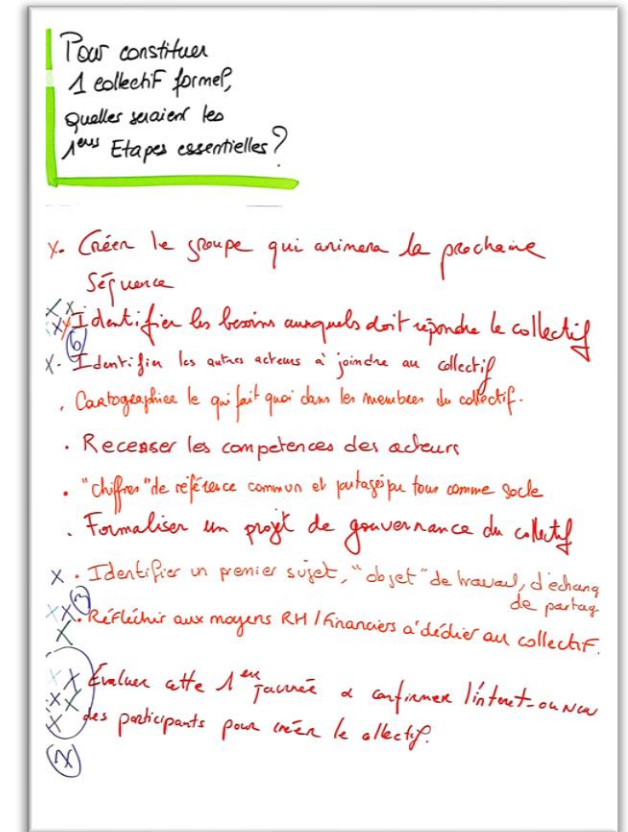 Pour constituer
1 collectif formel,
quelles seraient les
1ères Etapes essentielles ?
X. Créer le groupe qui animera la prochaine
Séquence
XX XX Identifier les besoins auxquels doit répondre le collectif
6
X. Identifier les autres acteurs à joindre au collectif
. Cartographier le qui fait quoi dans les membres du collectif.
. Recenser les competences des acteurs
. "chiffres" de référence commun et partagés par tous comme socle
. Formaliser un projet de gouvernance du collectif
X . Identifier un premier sujet, "objet" de travail, d'échang
de partag
XX . Réfléchir aux moyens RH / Financiers à dédier au collectif.
X
XX Evaluer cette 1ère journée & confirmer l'interet-ou non
XXX des participants pour créer le collectif.
X